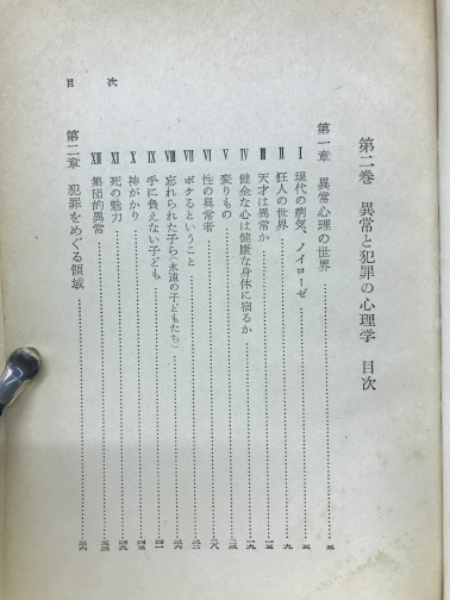 第二巻 異常と犯罪の心理学 目次
第一章 異常心理の世界……五
Ⅰ 現代の病気、ノイローゼ……五
Ⅱ 狂人の世界……九
Ⅲ 天才は異常か……一五
Ⅳ 健全な心は健康な身体に宿るか……一九
Ⅴ 変りもの……二三
Ⅵ 性の異常者……二八
Ⅶ ボケるということ……
Ⅷ 忘れられた子ら(永遠の子どもたち)……
Ⅸ 手に負えない子ども……四一
Ⅹ 神がかり……四五
Ⅺ 死の魅力……四九
Ⅻ 集団的異常……
第二章 犯罪をめぐる領域……
目 次